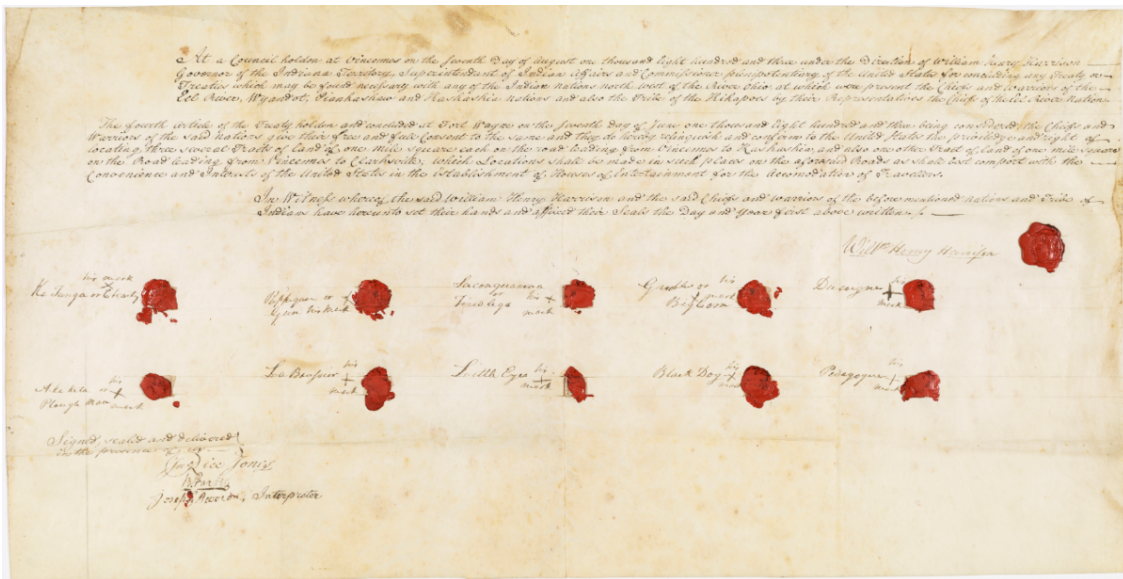 At a Council holden at Vincennes on the Seventh Day of August one thousand eight hundred and three under the Direction of William Henry Harrison
Governor of the Indiana Territory, Superintendent of Indian Affairs and Commissioner plenipotentiary of the United States for concluding any Treaty or
Treaties which may be found necessary with any of the Indian nations North west of the River Ohio, at which were present the Chiefs and Warriors of the
Eel River, Wyandot, Piankashaw and Kaskaskia nations and also the Tribe of the Kikapoes by their Representatives the Chiefs of the Eel River Nation
The fourth Article of the Treaty holden and concluded at Fort Wayne on the Seventh day of June one thousand eight hundred and three being considered the Chiefs and
Warriors of the said nations give their free and full Consent to the same and they do hereby relinquish and confirm to the United States the priviledge and right of
locating three several Tracts of land of one mile square each on the road leading from Vincennes to Kaskaskia, and also one other Tract of land of one mile square
on the Road leading from Vincennes to Clarksville; which Locations shall be made in such places on the aforesaid Roads as shall best comport with the
Convenience and Interests of the United States in the Establishment of Houses of Entertainment for the Accomodation of Travellers.
In Witness whereof, the said William Henry Harrison and the said Chiefs and warriors of the before mentioned nations and Tribe of
Indians have hereunto set their hands and affixed their Seals the Day and Year first above written.
Will Henry Harrison
Ka Tunga or Charly his mark
Gun his mark
or his mark
his mark
his mark
his mark
Plough Man
his mark
Little Eyes his mark
Black Dog his mark
his mark
Signed, sealed and delivered
in the presence of
Jones
Interpreter